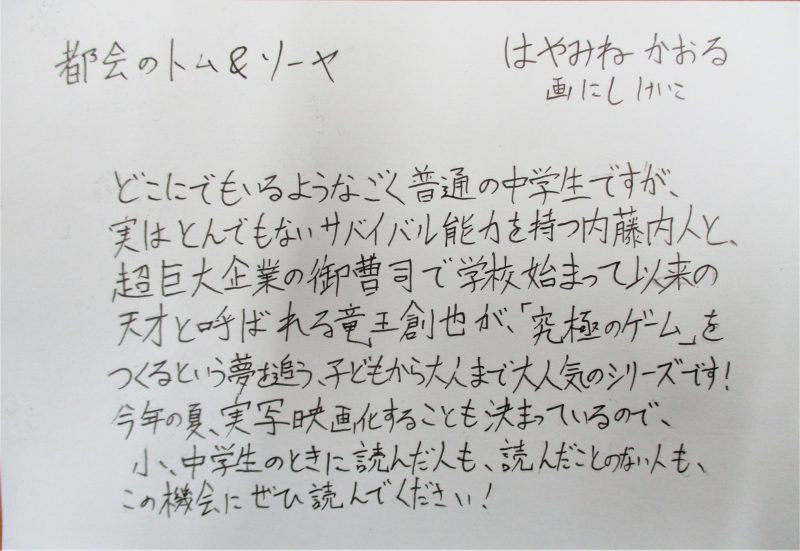 都会のトム&ソーヤ
はやみね かおる
画にし けいこ
どこにでもいるようなごく普通の中学生ですが、
実はとんでもないサバイバル能力を持つ内藤内人と、
超巨大企業の御曹司で学校始まって以来の
天才と呼ばれる竜王創也が、「究極のゲーム」を
つくるという夢を追う、子どもから大人まで大人気のシリーズです!
今年の夏、実写映画化することも決まっているので、
小、中学生のときに読んだ人も、読んだことのない人も、
この機会にぜひ読んでください!